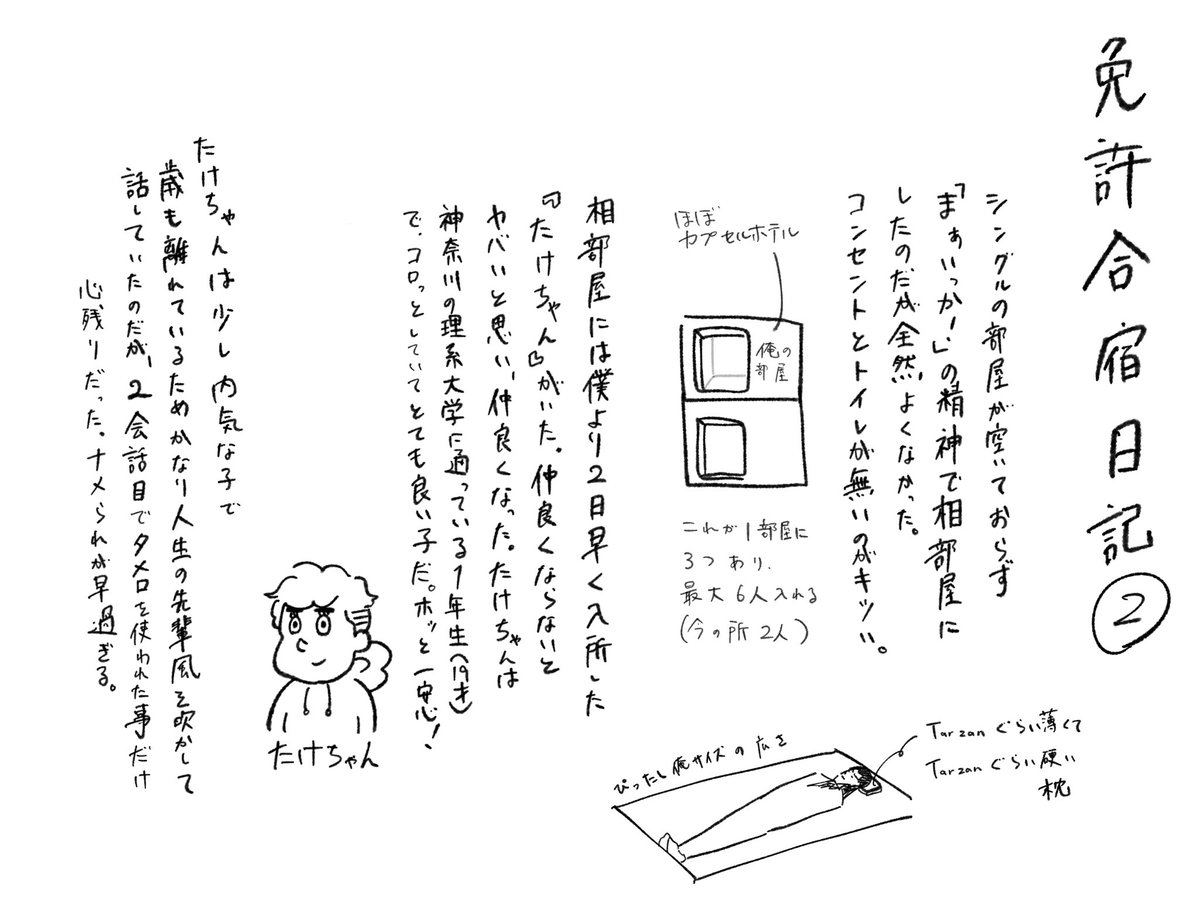 免許合宿日記②
シングルの部屋が空いておらず
「まぁいっかー」の精神で相部屋に
したのだが全然よくなかった。
コンセントとトイレが無いのがキツい。
ほぼ
カプセルホテル
俺の
部屋
これが1部屋に
3つあり、
最大6人入れる
(今の所2人)
ぴったし俺サイズの広さ
Tarzanぐらい薄くて
Tarzanぐらい硬い
枕
相部屋には僕より2日早く入所した
『たけちゃん』がいた。仲良くならないと
ヤバいと思い、仲良くなった。たけちゃんは
神奈川の理系大学に通っている1年生(19才)
で、コロっとしていてとても良い子だ。ホッと一安心!
たけちゃん
たけちゃんは少し内気な子で
歳も離れているためかなり人生の先輩風を吹かして
話していたのだが、2会話目でタメロを使われた事だけ
心残りだった。ナメられが早過ぎる。